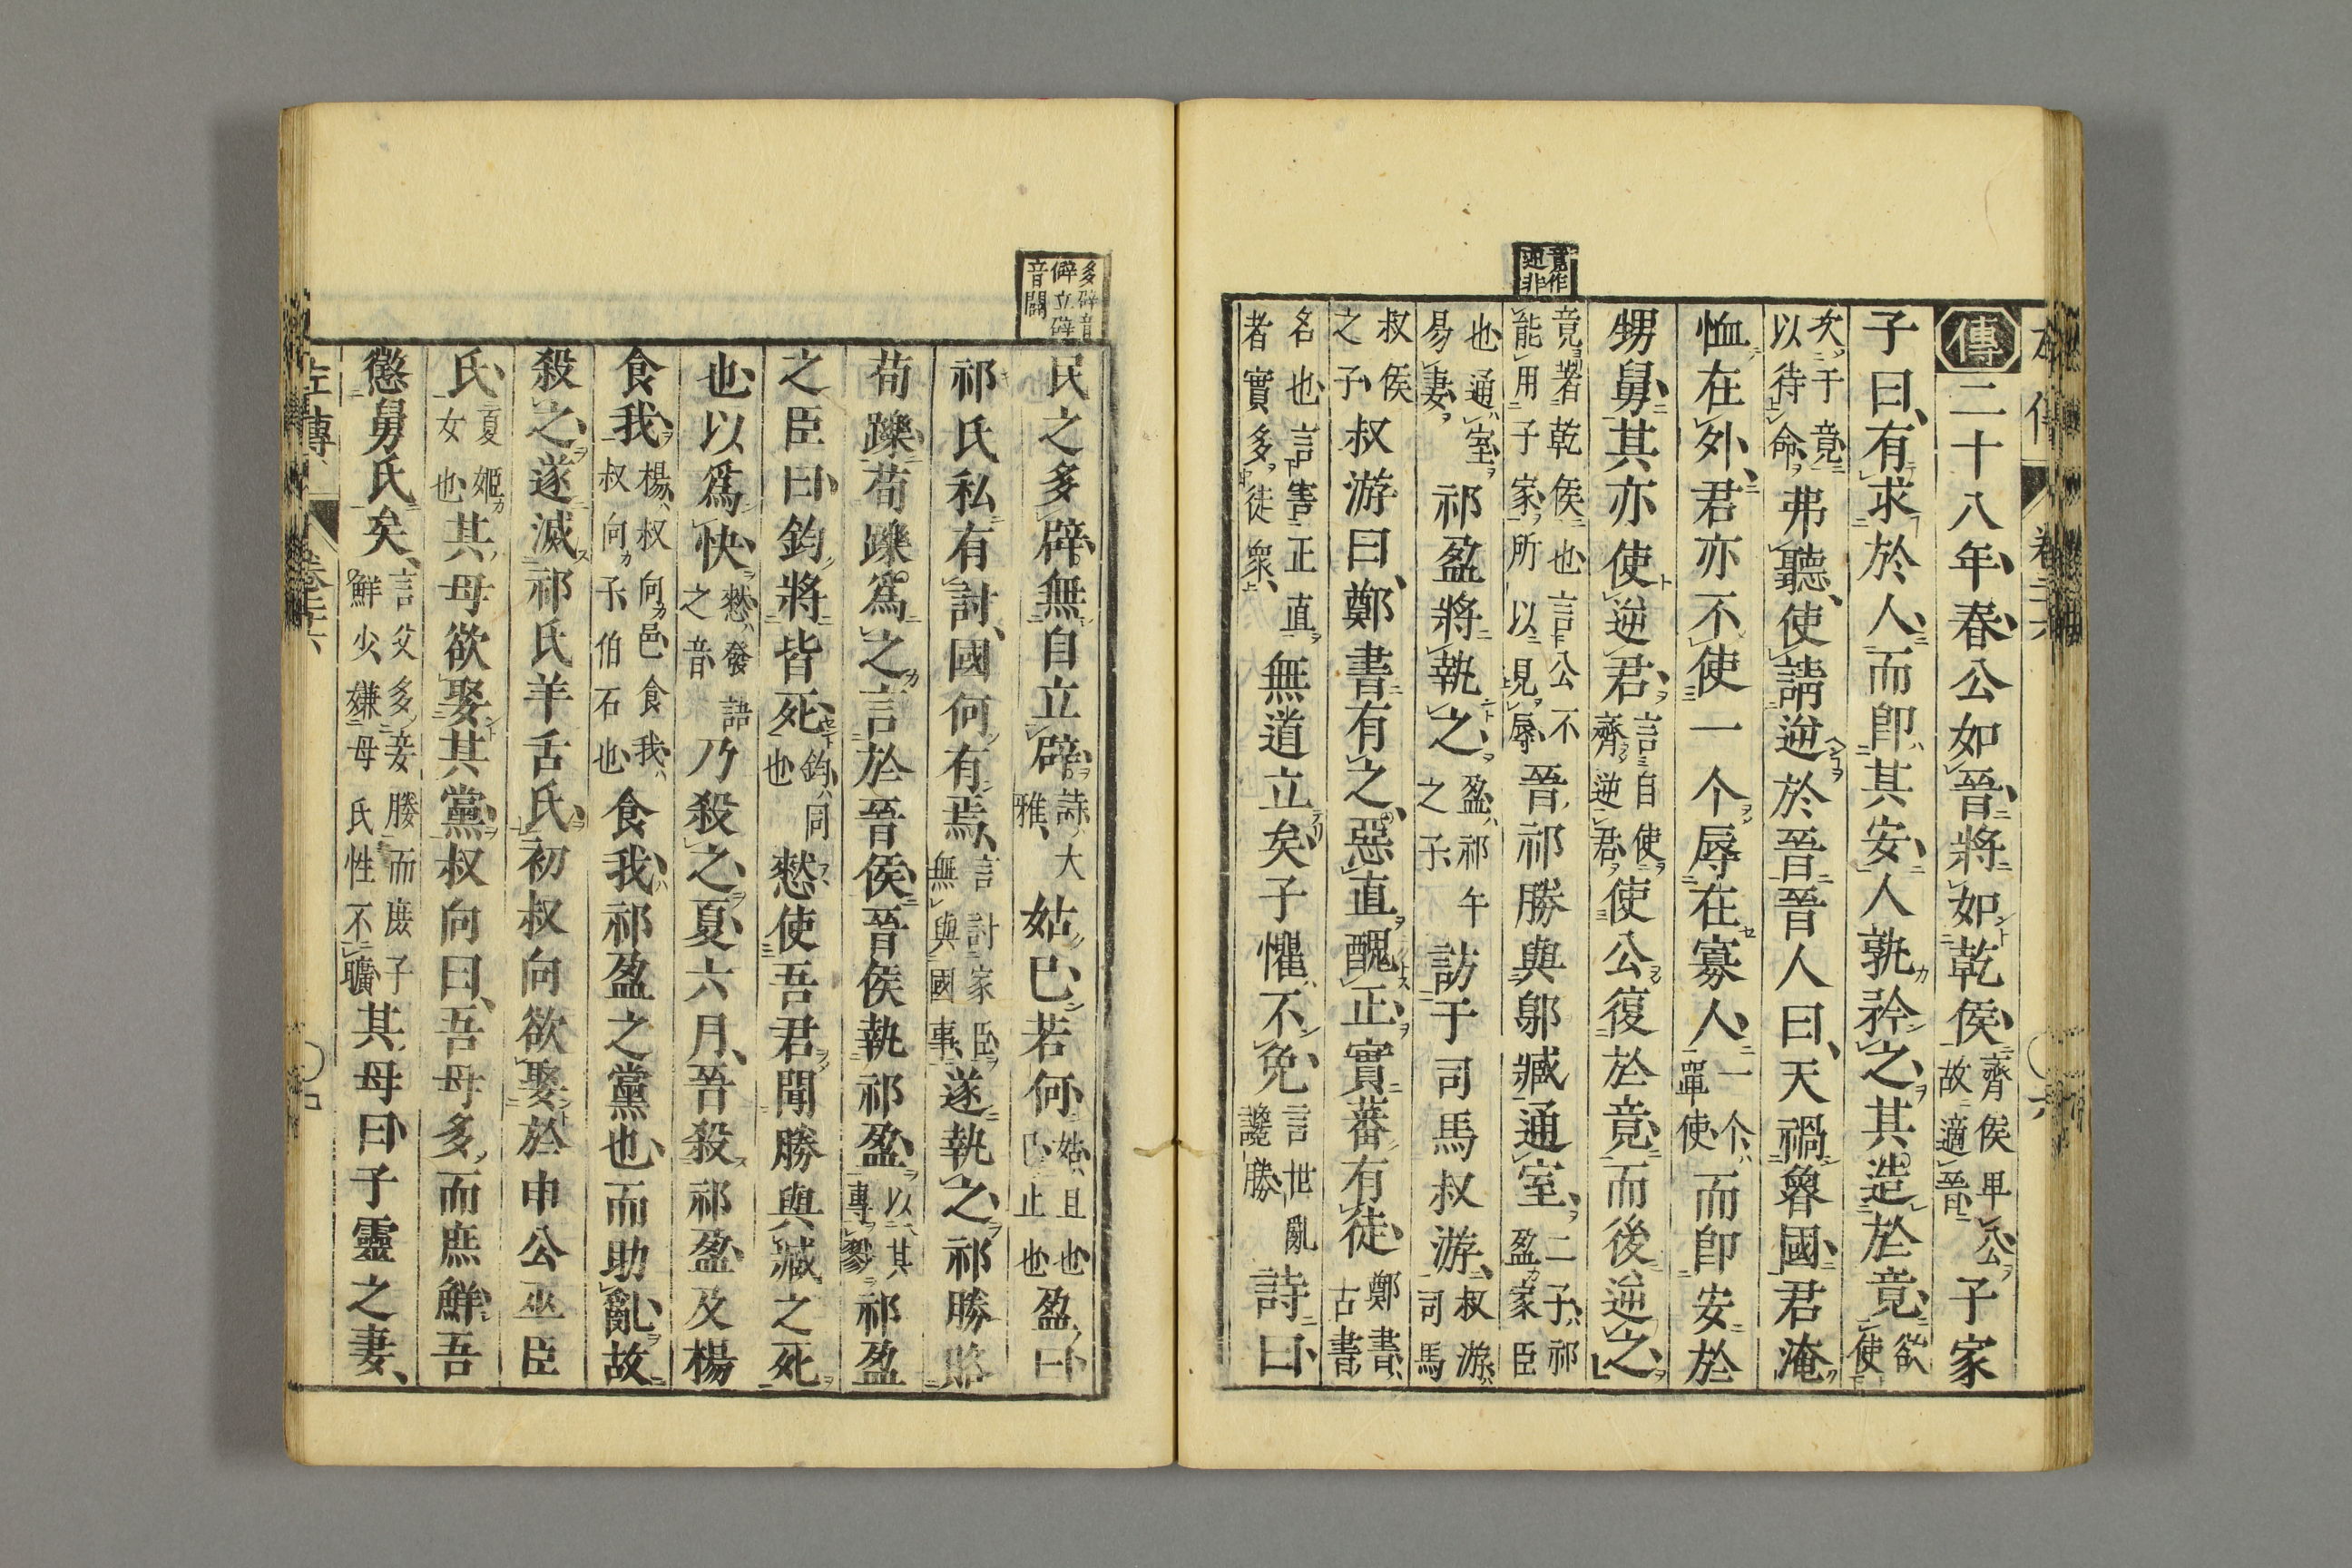 竟作
逆非
傳二十八年春公如晉將如乾侯齊侯卑公故適晉子家
子曰有求於人而卽其安人孰矜之其造於竟欲使
次于竟以待命弗聽使請逆於晉晉人曰天禍魯國君淹
恤在外君亦不使一个辱在寡人一个單使而卽安於
甥舅其亦使逆君言自使齊逆君使公復於竟而後逆之
竟者乾侯也言公不能用子家所以見辱晉祁勝與鄔臧通室二子祁盈家臣
也通室易妻祁盈將執之盈祁午之子訪于司馬叔游叔游司馬
叔侯之子叔游曰鄭書有之惡直醜正實蕃有徒鄭書古書
名也言害正直者實多徒衆無道立矣子懼不免言世亂讒勝詩曰
多辟音
僻立辟
音闢
民之多辟無自立辟詩大雅姑已若何姑且也已止也盈曰
祁氏私有討國何有焉言討家臣無與國事遂執之祁勝賂
荀躒荀躒爲之言於晉侯晉侯執祁盈以其專戮祁盈
之臣曰鈞將皆死鈞同也憖使吾君聞勝與臧之死
也以爲快憖發語之音乃殺之夏六月晉殺祁盈及楊
食我楊叔向邑食我叔向子伯石也食我祁盈之黨也而助亂故
殺之遂滅祁氏羊舌氏初叔向欲娶於申公巫臣
氏夏姬女也其母欲娶其黨叔向曰吾母多而庶鮮吾
懲舅氏矣言父多妾媵而庶子鮮少嫌母氏性不曠其母曰子靈之妻